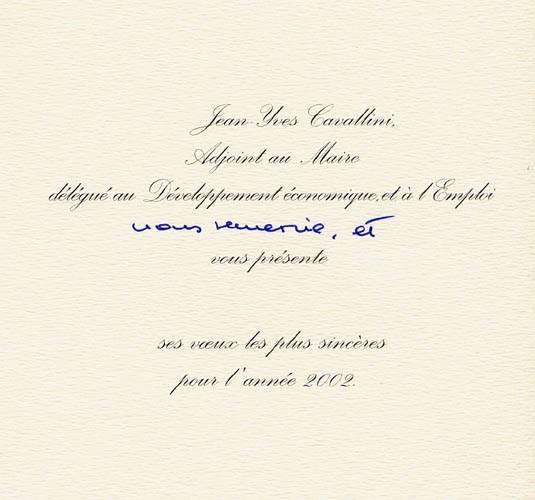 Jean-Yves Cavallini,
Adjoint au Maire
délégué au Développement économique, et à l'Emploi
vous remercie, et
vous présente
ses vœux les plus sincères
pour l'année 2002.